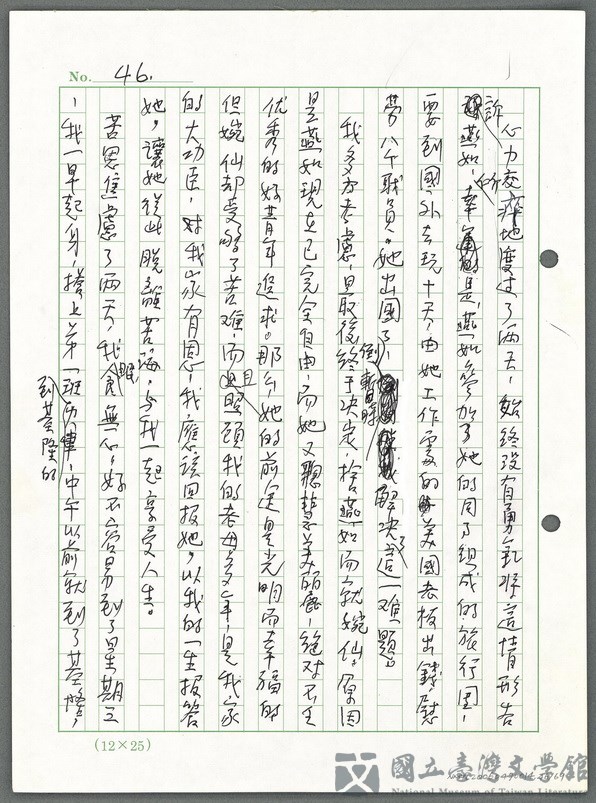 No. 46.
心力交瘁地度过了两天,始终没有勇氣將這情形告
訴燕如,幸而的是,燕如參加了她的同事組成的旅行團,
要到國外去玩十天,由她工作處的美國老板出錢,慰
勞八个職員。她出國了,倒暫時解決了這一难題。
我多方考慮,最後終于决定,捨燕如而就婉仙。原因
是燕如現在已完全自由,而她又聰慧美麗,絕对不乏
优秀的好青年追求。那么,她的前途是光明而幸福的
但婉仙却受够了苦难,而且照顧我的老母多年,是我家
的大功臣,对我家有恩,我應該回报她,以我的一生报答
她,讓她從此脫離苦海,与我一起享受人生。
苦思焦慮了兩天,我食眠無心,好不容易到了星期三
,我一早起身,搭上第一班到基隆的車,中午以前就到了基隆,
(12×25)
國立臺灣文學館
National Museum of Taiwan Literature